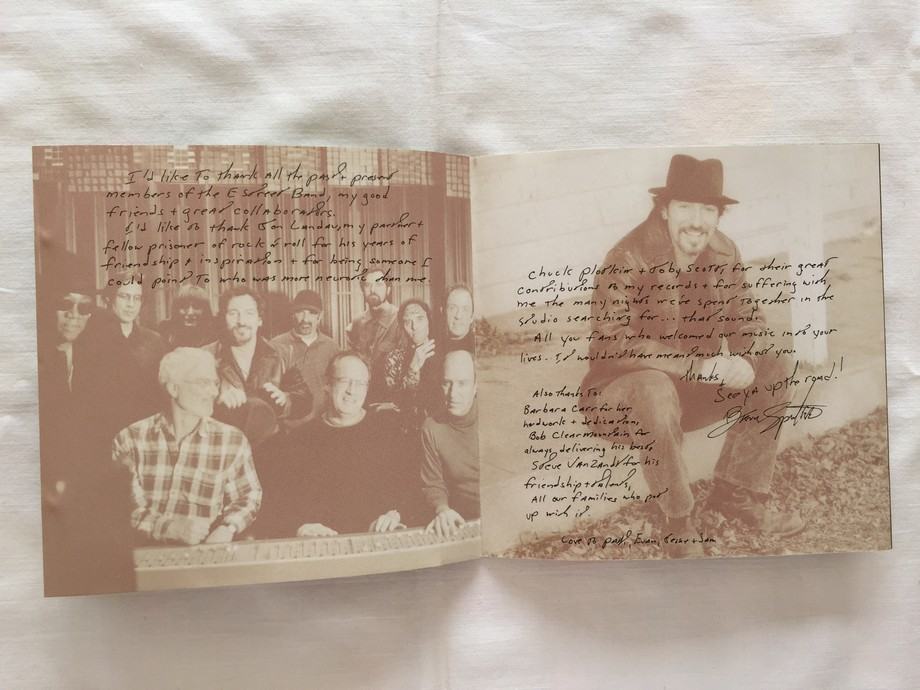 I'd like To thank All the past + present
members of the E Street Band, my good
friends + great collaborators.
I'd like to thank Jon Landau, my partner +
fellow prisoner of rock + roll for his years of
friendship + inspiration + for being someone I
could point To who was more neurotic than me.
Chuck Plotkin + Toby Scott, for their great
contributions to my records + for suffering with
me the many nights we've spent together in the
studio searching for... that sound.
All you fans who welcomed our music into your
lives. It wouldn't have meant much without you.
thanks,
See ya up the road!
Bruce Springsteen
Also thanks To:
Barbara Carr for her
hardwork + dedication,
Bob Clearmountain for
always delivering his best,
Steve Van Zandt for his
friendship + talents,
All our families who put
up with it.
Love to patti, Evan, Jessie + Sam